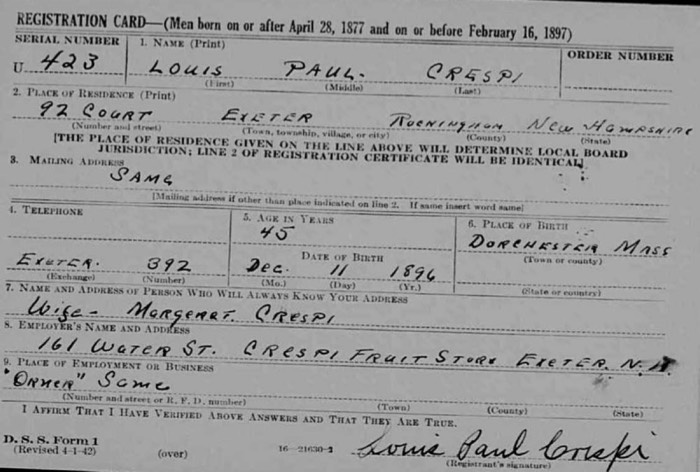 REGISTRATION CARD—(Men born on or after April 28, 1877 and on or before February 16, 1897)
SERIAL NUMBER 1. NAME (Print) ORDER NUMBER
U 423 LOUIS PAUL. CRESPI
(First) (Middle) (Last)
2. PLACE OF RESIDENCE (Print)
92 COURT EXETER ROCKINGHAM NEW HAMPSHIRE
(Number and street) (Town, township, village, or city) (County) (State)
[THE PLACE OF RESIDENCE GIVEN ON THE LINE ABOVE WILL DETERMINE LOCAL BOARD
JURISDICTION; LINE 2 OF REGISTRATION CERTIFICATE WILL BE IDENTICAL]
3. MAILING ADDRESS
SAME
[Mailing address if other than place indicated on line 2. If same insert word same]
4. TELEPHONE 5. AGE IN YEARS 6. PLACE OF BIRTH
45
DORCHESTER MASS
DATE OF BIRTH (Town or county)
EXETER. 392 Dec. 11 1896
(Exchange) (Number) (Mo.) (Day) (Yr.) (State or country)
7. NAME AND ADDRESS OF PERSON WHO WILL ALWAYS KNOW YOUR ADDRESS
Wife - Margerat. CRESPI
8. EMPLOYER'S NAME AND ADDRESS
161 WATER ST. CRESPI FRUIT STORE EXETER. N.H.
9. PLACE OF EMPLOYMENT OR BUSINESS
"OWNER" SAME
(Number and street or R. F. D. number) (Town) (County) (State)
I AFFIRM THAT I HAVE VERIFIED ABOVE ANSWERS AND THAT THEY ARE TRUE.
D. S. S. Form 1
(Revised 4-1-42) (over) 16—21630-2 Louis Paul Crespi
(Registrant's signature)